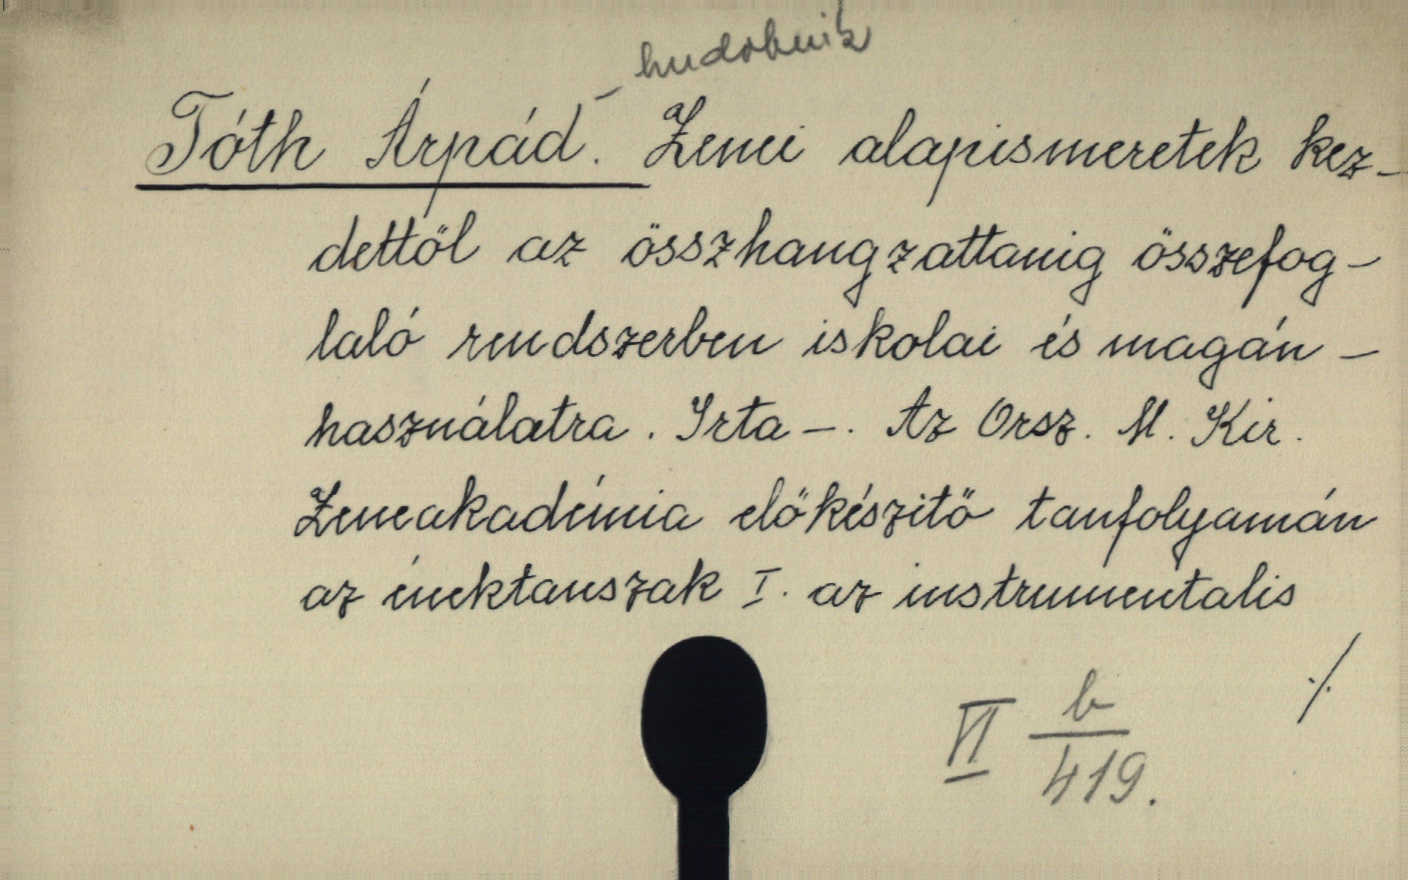 – hudobnik
Tóth Árpád. Zenei alapismeretek kez-
dettől az összhangzattanig összefog-
laló rendszerben iskolai és magán-
használatra. Irta –. Az Orsz. M. Kir.
Zeneakadémia előkészitö tanfolyamán
az énektanszak I. az instrumentalis
./.
VI b/419.